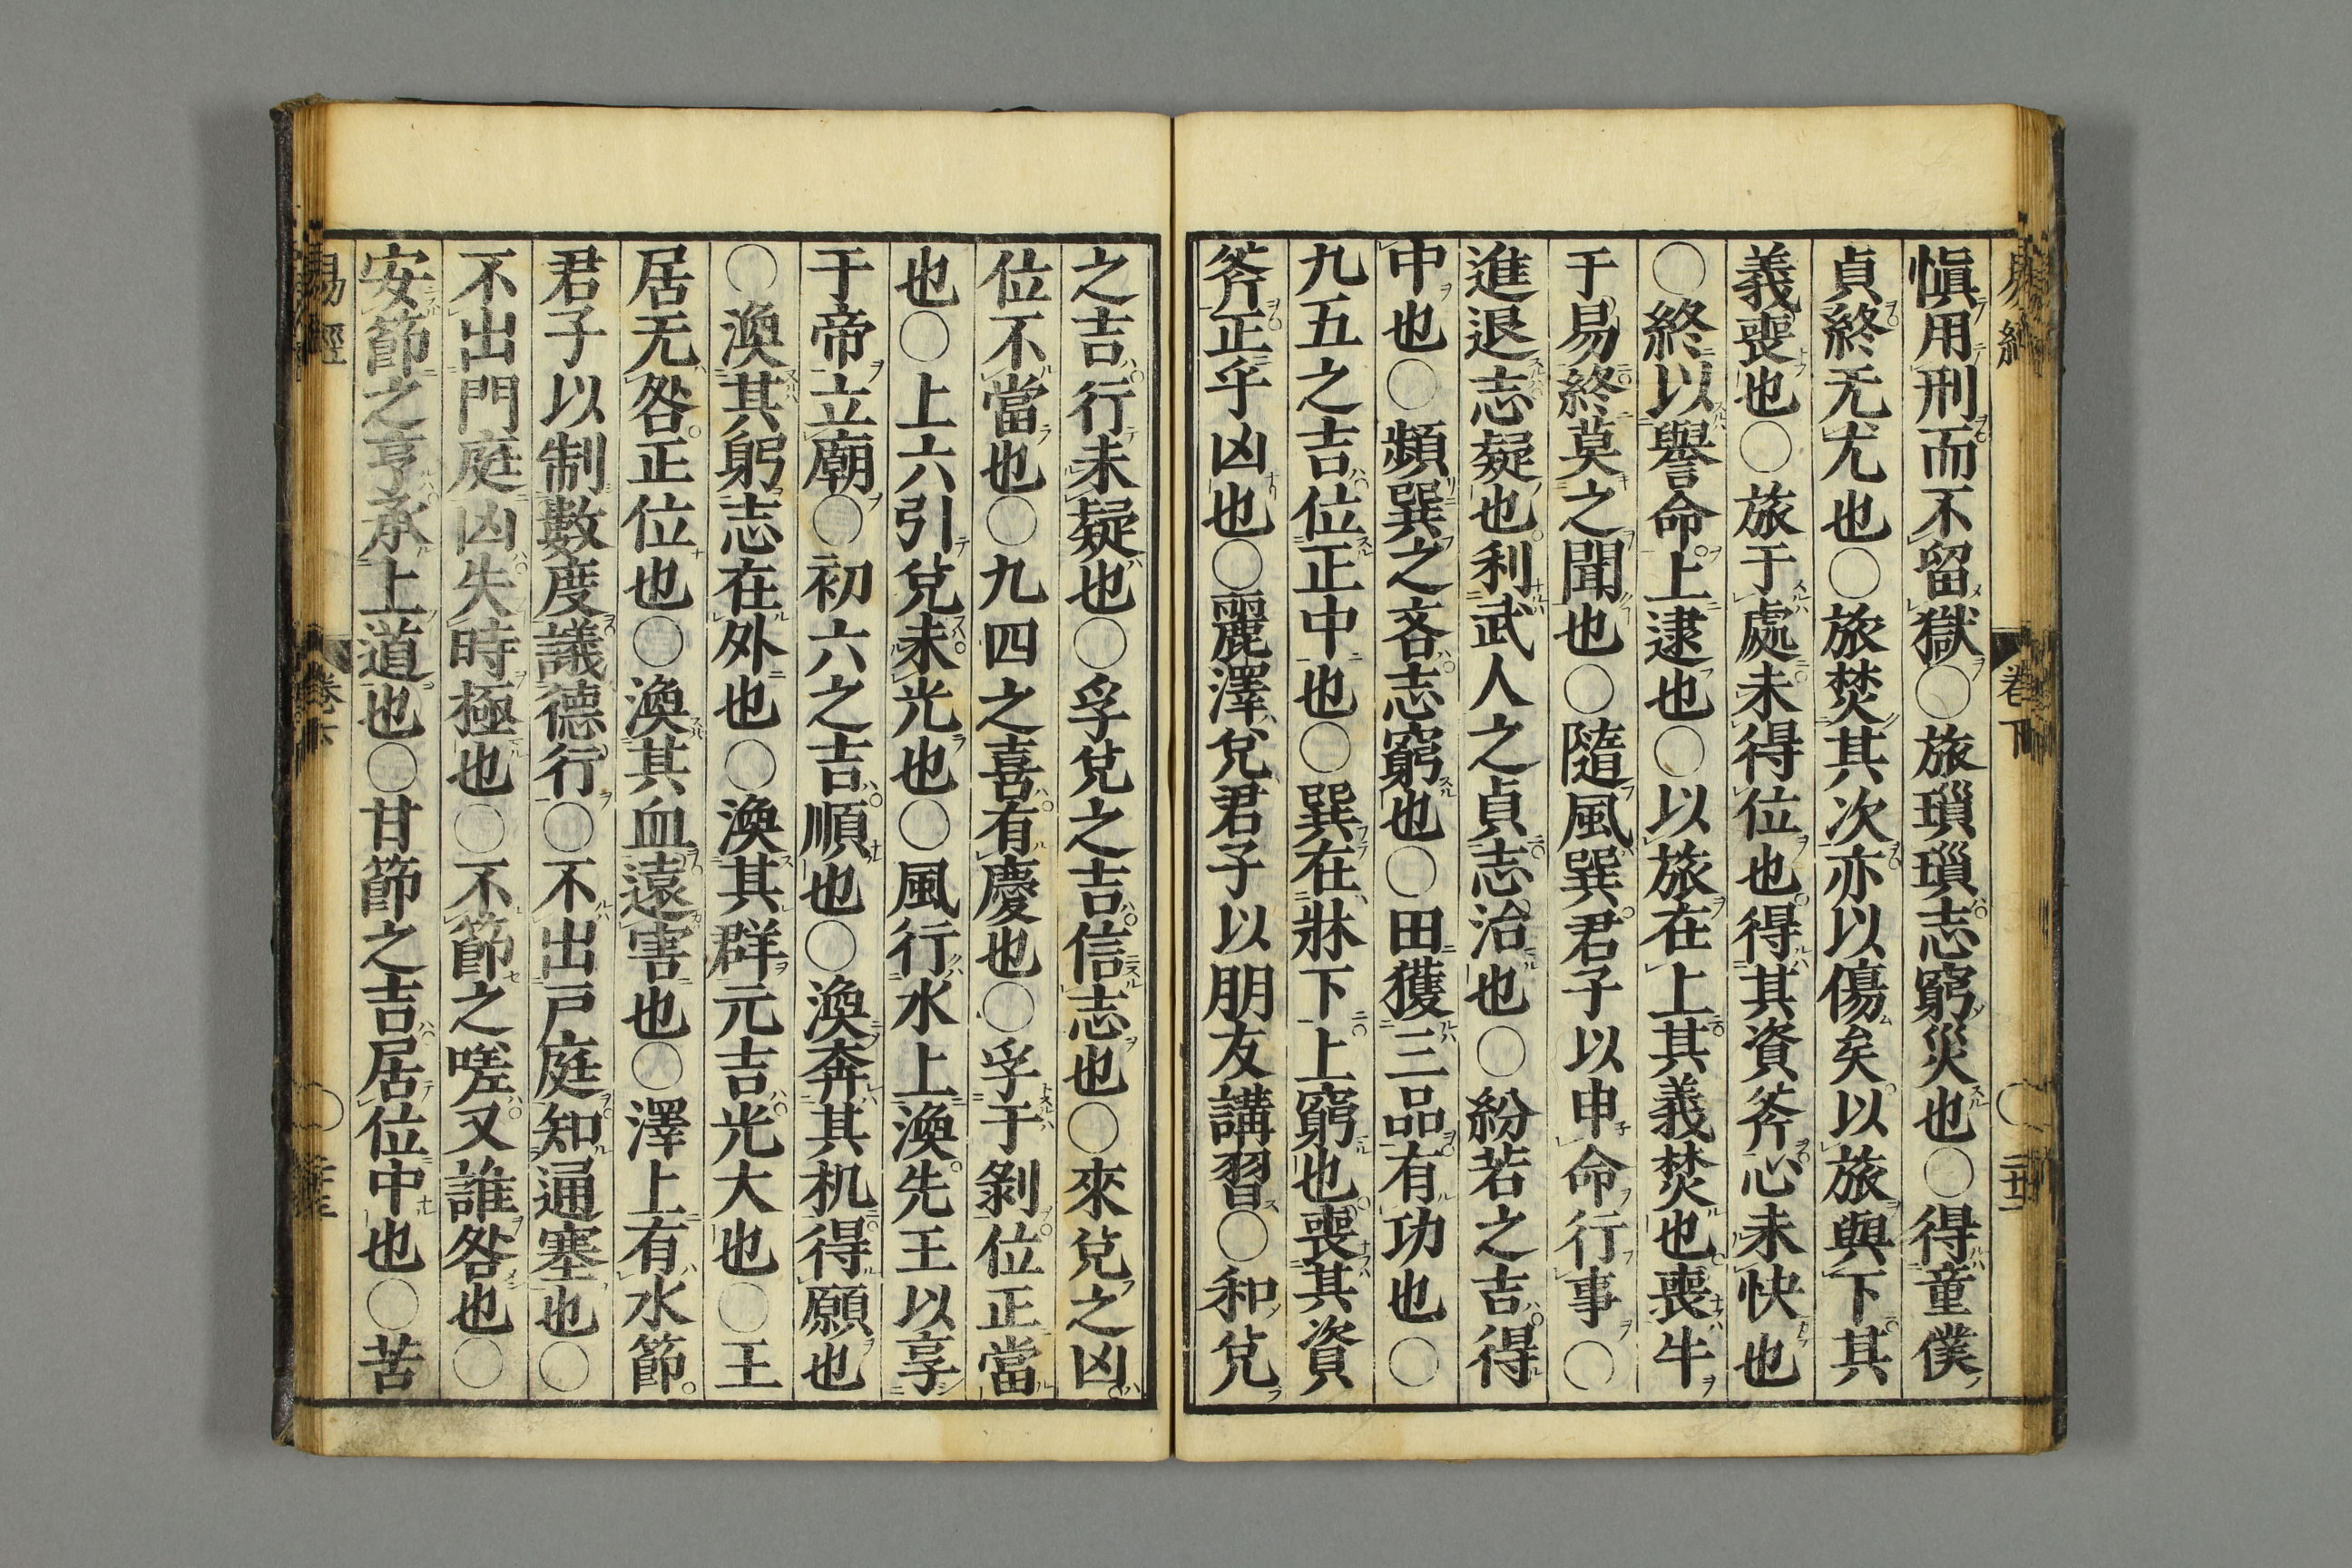 愼用刑而不留獄○旅瑣瑣志窮災也○得童僕
貞終无尤也○旅焚其次亦以傷矣以旅與下其
義喪也○旅于處未得位也得其資斧心未快也
○終以譽命上逮也○以旅在上其義焚也喪牛
于易終莫之聞也○隨風巽君子以申命行事○
進退志疑也利武人之貞志治也○紛若之吉得
中也○頻巽之吝志窮也○田獲三品有功也○
九五之吉位正中也○巽在牀下上窮也喪其資
斧正乎凶也○麗澤兌君子以朋友講習○和兌
之吉行未疑也○孚兌之吉信志也○來兌之凶
位不當也○九四之喜有慶也○孚于剝位正當
也○上六引兌未光也○風行水上渙先王以享
于帝立廟○初六之吉順也○渙奔其机得願也
○渙其躬志在外也○渙其群元吉光大也○王
居无咎正位也○渙其血遠害也○澤上有水節
君子以制數度議德行○不出戸庭知通塞也○
不出門庭凶失時極也○不節之嗟又誰咎也○
安節之亨承上道也○甘節之吉居位中也○苦
易經 卷下